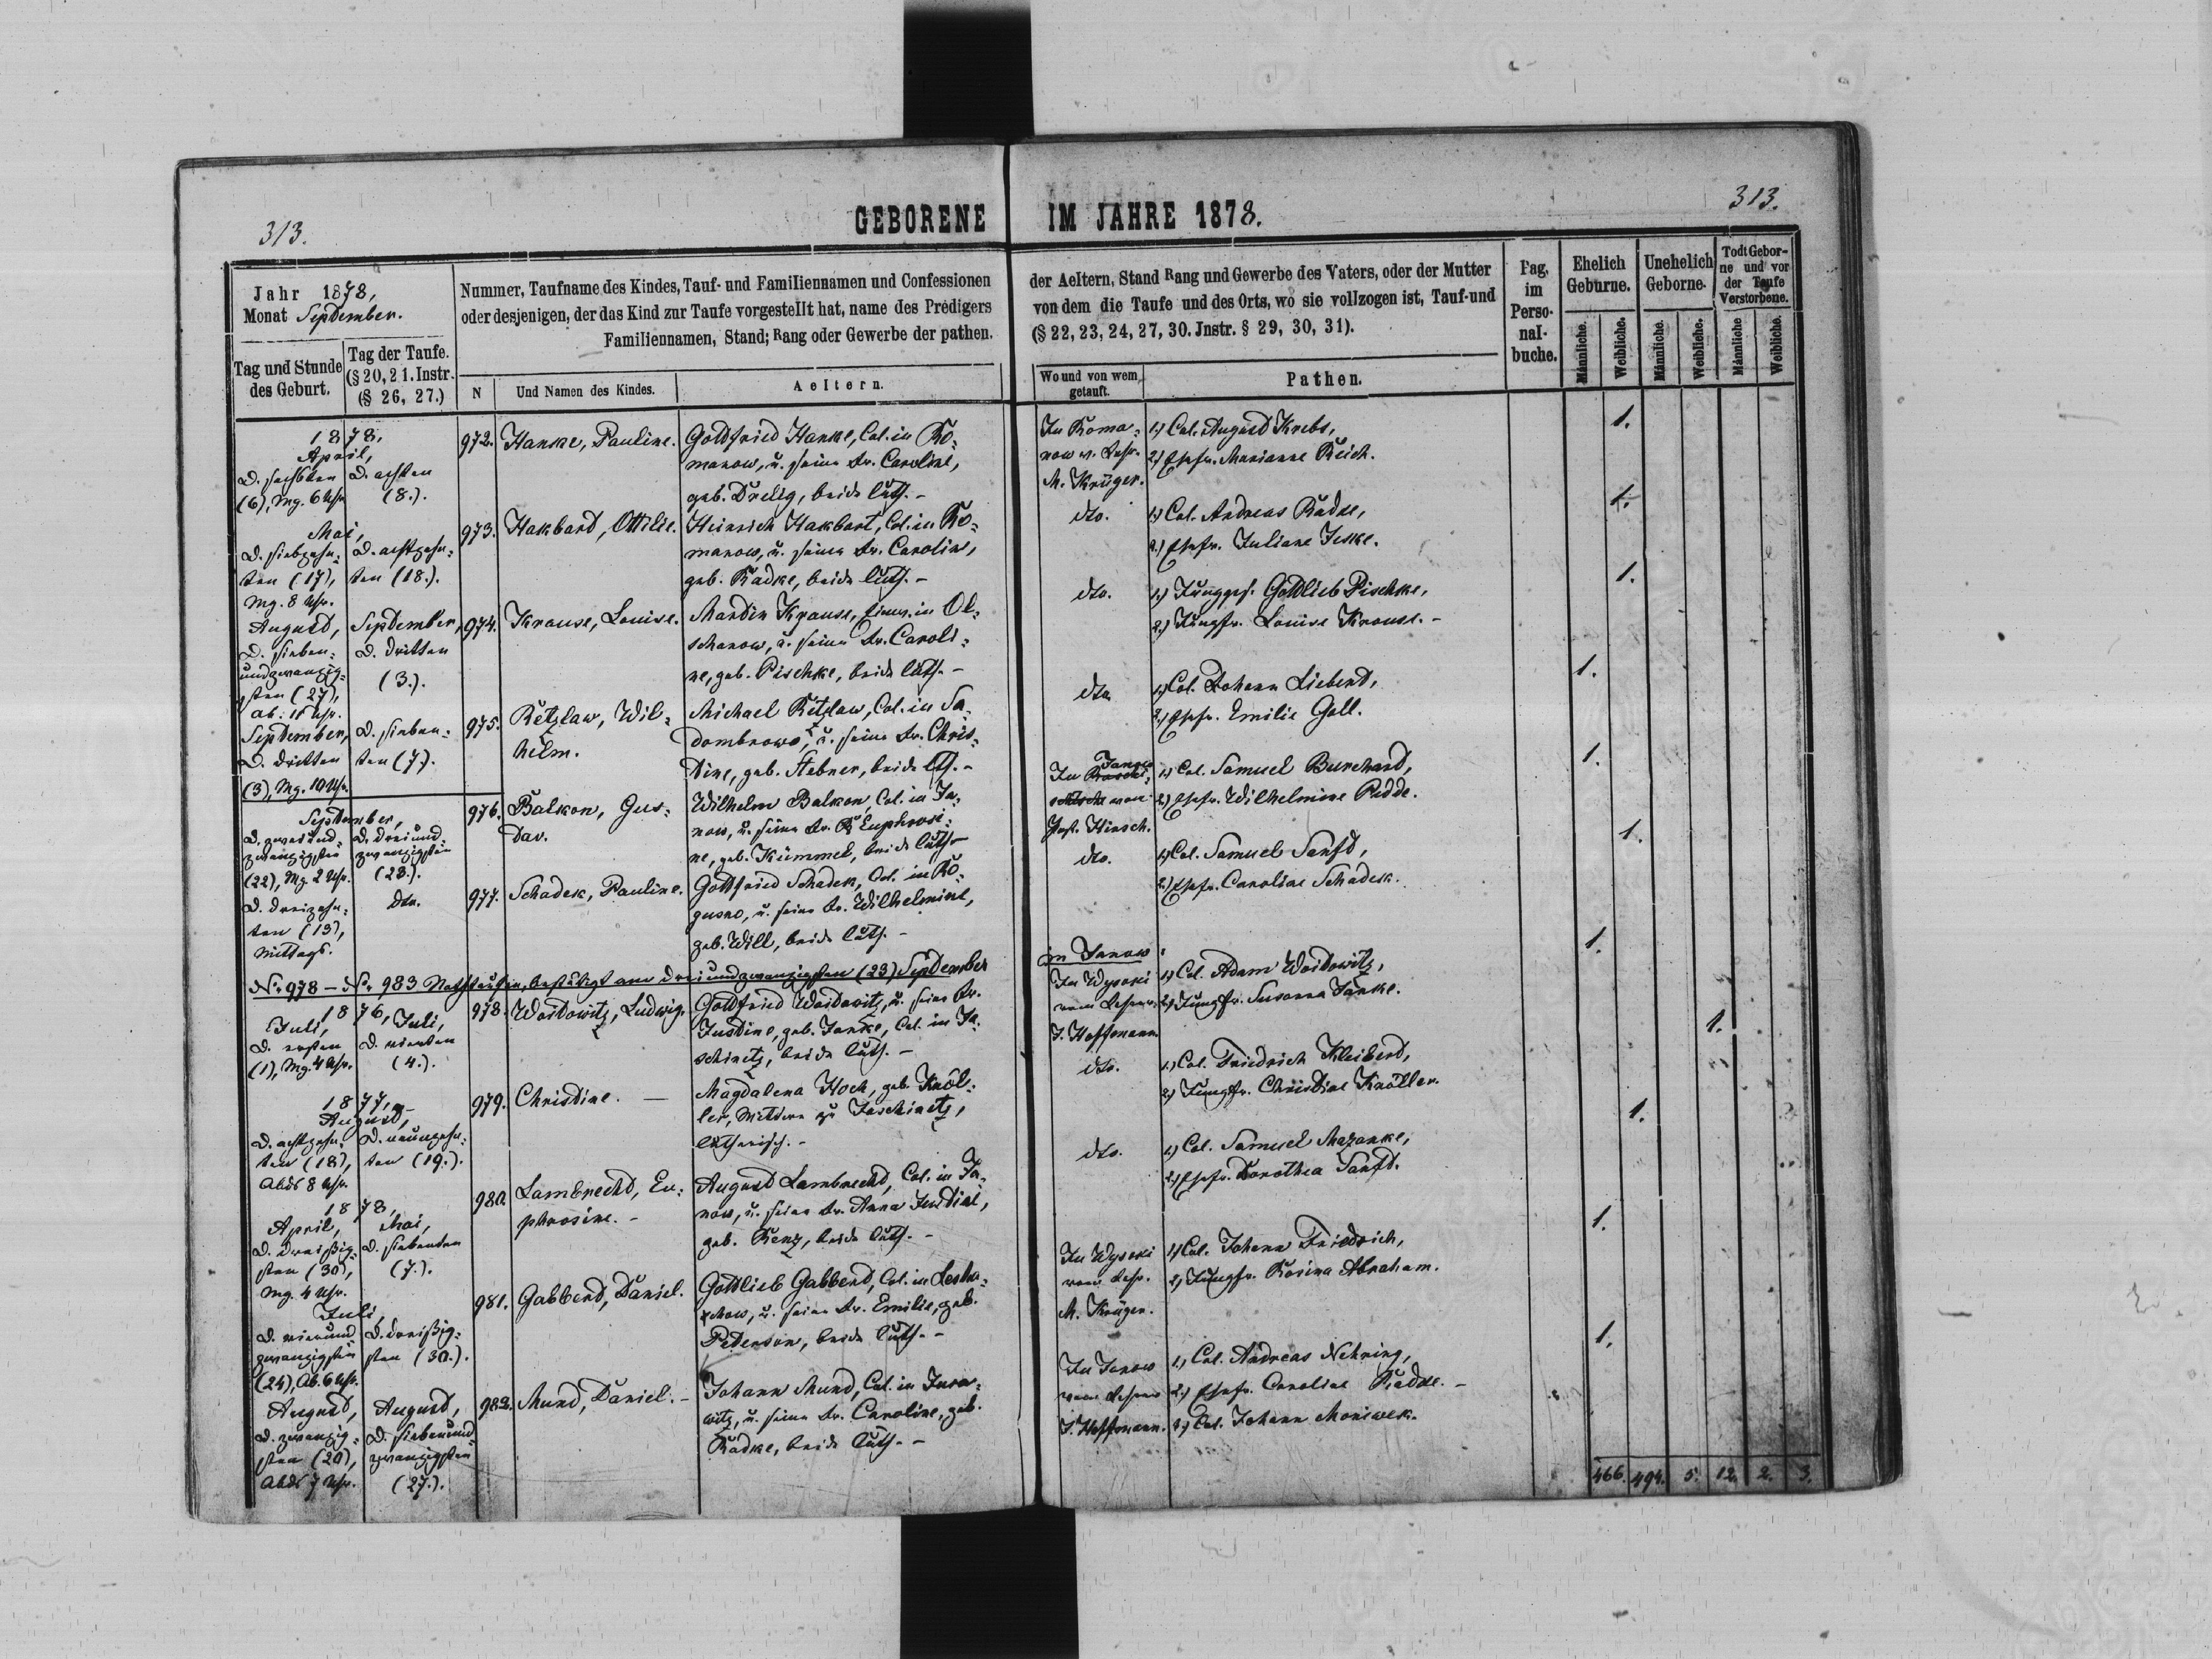 313.
GEBORENE IM JAHRE 1878.
313.
Jahr 1878,
Monat September.
Tag und Stunde des Geburt.
Tag der Taufe.
(§ 20, 21. Instr.
(§ 26, 27.)
Nummer, Taufname des Kindes, Tauf- und Familiennamen und Confessionen
oder desjenigen, der das Kind zur Taufe vorgestellt hat, name des Predigers
Familiennamen, Stand; Rang oder Gewerbe der pathen.
N
Und Namen des Kindes.
Aeltern.
der Aeltern, Stand Rang und Gewerbe des Vaters, oder der Mutter
von dem die Taufe und des Orts, wo sie vollzogen ist, Tauf-und
(§ 22, 23, 24, 27, 30. Jnstr. § 29, 30, 31).
Wo und von wem getauft.
Pathen.
Pag. im Perso- nal- buche.
Ehelich Geburne.
Unehelich Geborne.
Todt Gebor- ne und vor der Taufe Verstorbene.
Männliche.
Weibliche.
Männliche.
Weibliche.
Männliche
Weibliche.
1878,
April,
D. sechsten
(6), Mg. 6 Uhr
D. achten
(8.).
972.
Hanke, Pauline.
Gottfried Hanke, Col. in Ro-
manow, u. seine Fr. Caroline,
geb. Drelig, beide luth. -
In Roma-
now v. Lehr.
M. Krüger.
1.) Col. August Krebs,
2.) Ehefr. Marianne Reich.
1.
Mai,
D. siebzehn-
ten (17),
Mg. 8 Uhr.
D. achtzehn-
ten (18.).
973.
Hakbart, Ottilie.
Heinrich Hakbart, Col. in Ro-
manow, u. seine Fr. Caroline,
geb. Radke, beide luth. -
dto.
1.) Col. Andreas Radke,
2.) Ehefr. Juliane Jeske.
1.
August,
D. sieben-
undzwanzig-
sten (27),
September,
D. dritten
(3.).
974.
Krause, Louise.
Martin Krause, Einw. in Ol-
schanow, u. seine Fr. Caroli-
ne, geb. Pischke, beide luth. -
dto.
1.) Junggs. Gottlieb Pischke,
2.) Jungfr. Louise Krause. -
1.
September,
D. dritten
(3), Mg. 10 Uhr.
D. sieben-
ten (7).
975.
Retzlaw, Wil-
helm.
Michael Retzlaw, Col. in Sa-
dombrowo, u. seine Fr. Chris-
tine, geb. Stebner, beide luth. -
dto.
1.) Col. Johann Liebert,
2.) Ehefr. Emilie Goll.
1.
September,
D. zweiund-
zwanzigsten
(22), Mg. 2 Uhr.
D. dreiund-
zwanzigsten
(23.).
976.
Balkon, Gus-
tav.
Wilhelm Balkon, Col. in Ja-
now, u. seine Fr. Euphrosi-
ne, geb. Kümmel, beide luth. -
In Janow
von
Past. Hirsch.
1.) Col. Samuel Burchard,
2.) Ehefr. Wilhelmine Redde.
1.
D. dreizehn-
ten (13),
Mittags.
dto.
977.
Schadek, Pauline.
Gottfried Schadek, Col. in Ro-
gusno, u. seine Fr. Wilhelmine,
geb. Will, beide luth. -
dto.
1.) Col. Samuel Sanft,
2.) Ehefr. Caroline Schadek.
1.
No. 978 - No. 983 Nothtaufen, bestätigt am dreiundzwanzigsten (23) September
in Janow
1876,
Juli,
D. ersten
(1), Mg. 4 Uhr.
Juli,
D. vierten
(4.).
978.
Woitowitz, Ludwig.
Gottfried Woitowitz, u. seine Fr.
Justine, geb. Janke, Col. in Ja-
schinetz, beide luth. -
In Wysoki
vom Lehrer
J. Hoffmann
1.) Col. Adam Woitowitz,
2.) Jungfr. Susanna Janke.
1.
1877,
August,
D. achtzehn-
ten (18),
Abds 8 Uhr.
D. neunzehn-
ten (19.).
979.
Christine. -
Magdalena Hoch, geb. Knöl-
ler, Wittwe zu Jaschinetz,
lutherisch. -
dto.
1.) Col. Friedrich Kleibert,
2.) Jungfr. Christine Knöller.
1.
1878,
April,
D. dreißig-
sten (30),
Mg. 4 Uhr.
Mai,
D. siebenten
(7.).
980.
Lambrecht, Eu-
phrosine. -
August Lambrecht, Col. in Ja-
now, u. seine Fr. Anna Justine,
geb. Renz, beide luth. -
dto.
1.) Col. Samuel Mazanke,
2.) Ehefr. Dorothea Sanft.
1.
Juli,
D. vierund-
zwanzigsten
(24), Ab. 6 Uhr.
D. dreißig-
sten (30.).
981.
Gabbert, Daniel.
Gottlieb Gabbert, Col. in
u. seine Fr. Emilie, geb.
Peterson, beide luth. -
In Wysoki
vom Lehr.
M. Krüger.
1.) Col. Johann Friedrich,
2.) Jungfr. Rosina Abraham.
1.
August,
D. zwanzig-
sten (20),
Abds 7 Uhr.
August,
D. siebenund-
zwanzigsten
(27.).
982.
Mund, Daniel. -
Johann Mund, Col. in Jura-
witz, u. seine Fr. Caroline, geb.
Radke, beide luth. -
In Janow
vom Lehrer
J. Hoffmann.
1.) Col. Andreas Nehring,
2.) Ehefr. Caroline Radke. -
3.) Col. Johann Moniwek.
1.
466. 494. 5. 12. 2. 3.